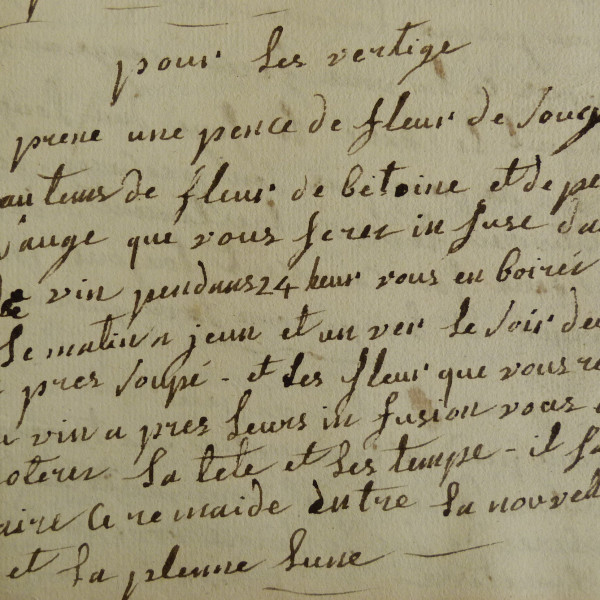 pour les vertige
prene une pence de fleur de Soug
autems de fleur de bétoine et de pe
Sauge que vous ferer in fuse da
de vin pendans 24 heur vous en boirér
le matin a jeun et un ver le Soir de
pres Soupé - et les fleur que vous re
vin a pres leurs in fusion vous
oterer la tete et les tempe - il fa
aire ce remaide entre la nouvell
et la plenne lune